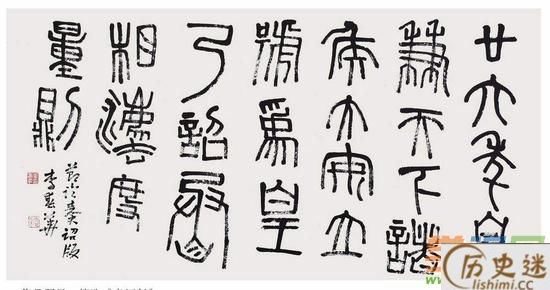 廿六年皇
兼天下諸
侯大安立
號為皇
乃詔丞
相灋度
量則
節臨秦詔版
李
历史迷